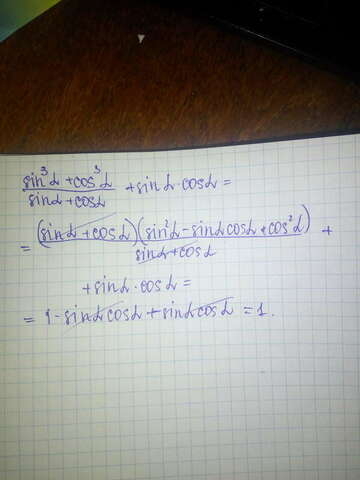 sin³α + cos³α / sinα + cosα + sinα · cosα =
= (sinα + cosα)(sin²α - sinα cosα + cos²α) / sinα + cosα +
+ sinα · cosα =
= 1 - sinα cosα + sinα cosα = 1.